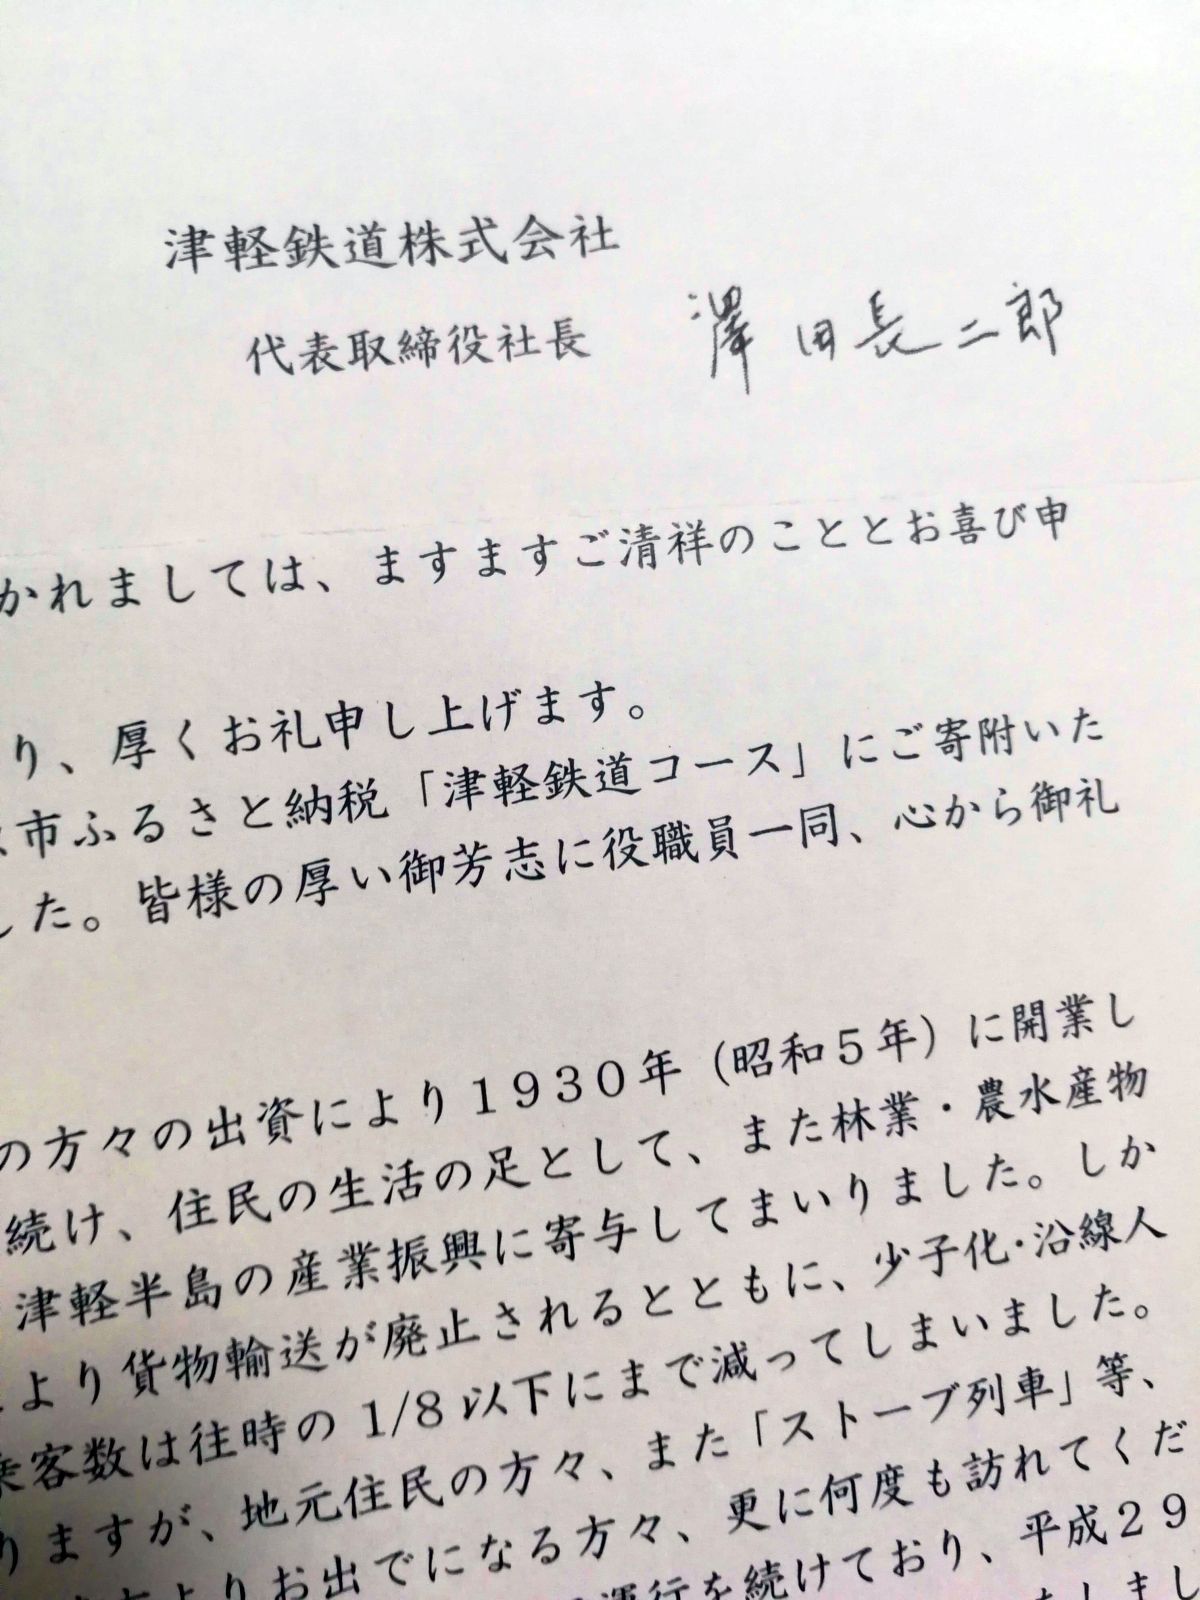 津軽鉄道株式会社
代表取締役社長 澤田長二郎
かれましては、ますますご清祥のこととお喜び申
り、厚くお礼申し上げます。
市ふるさと納税「津軽鉄道コース」にご寄附いた
した。皆様の厚い御芳志に役職員一同、心から御礼
の方々の出資により1930年（昭和5年）に開業し
続け、住民の生活の足として、また林業・農水産物
津軽半島の産業振興に寄与してまいりました。しか
より貨物輸送が廃止されるとともに、少子化・沿線人
乗客数は往時の1/8以下にまで減ってしまいました。
りますが、地元住民の方々、また「ストーブ列車」等、
よりお出でになる方々、更に何度も訪れてくだ
運行を続けており、平成29